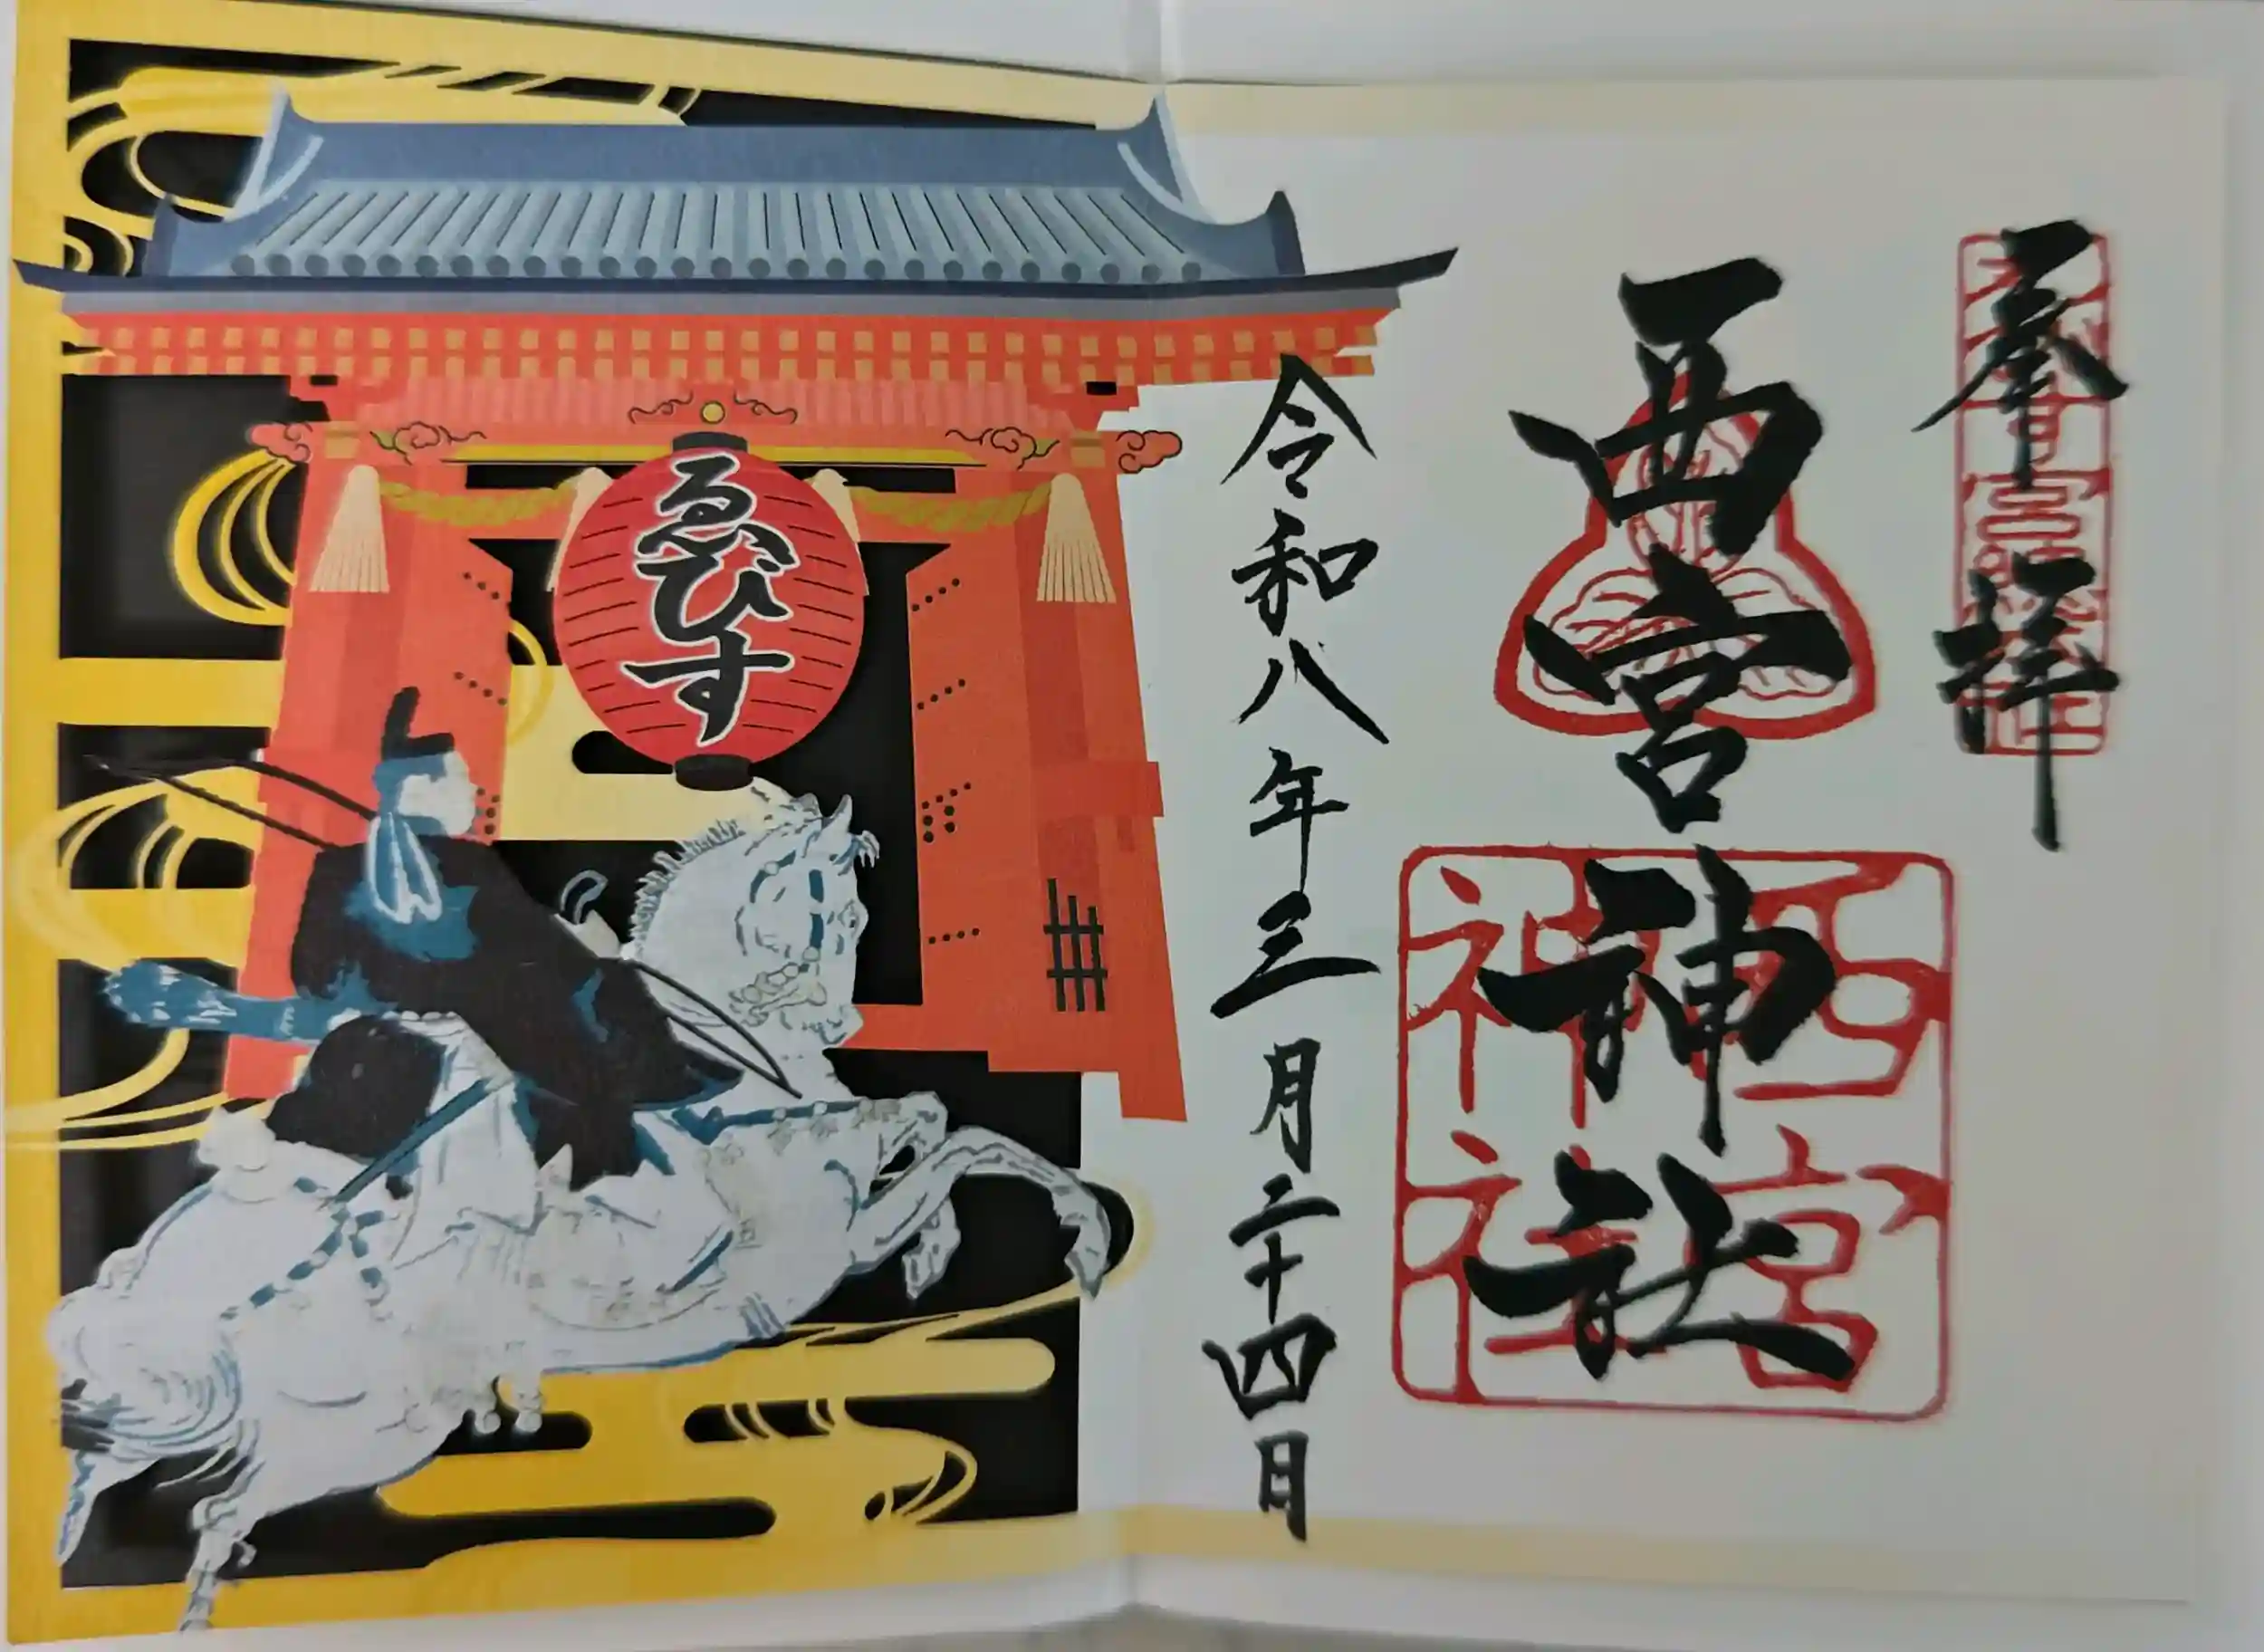 奉拝
西宮神社
西宮神社
令和八年三月二十四日
ゑびす